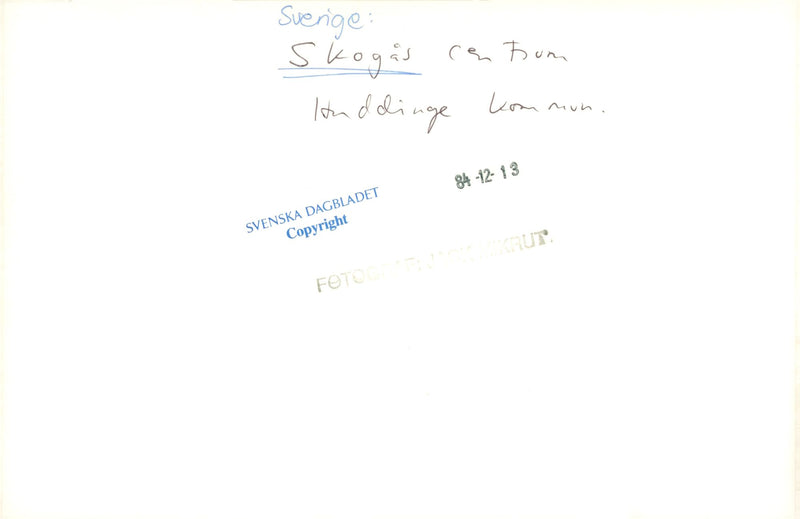 Sverige:
Skogås centrum
Huddinge kommun.
84-12-13
SVENSKA DAGBLADET
Copyright